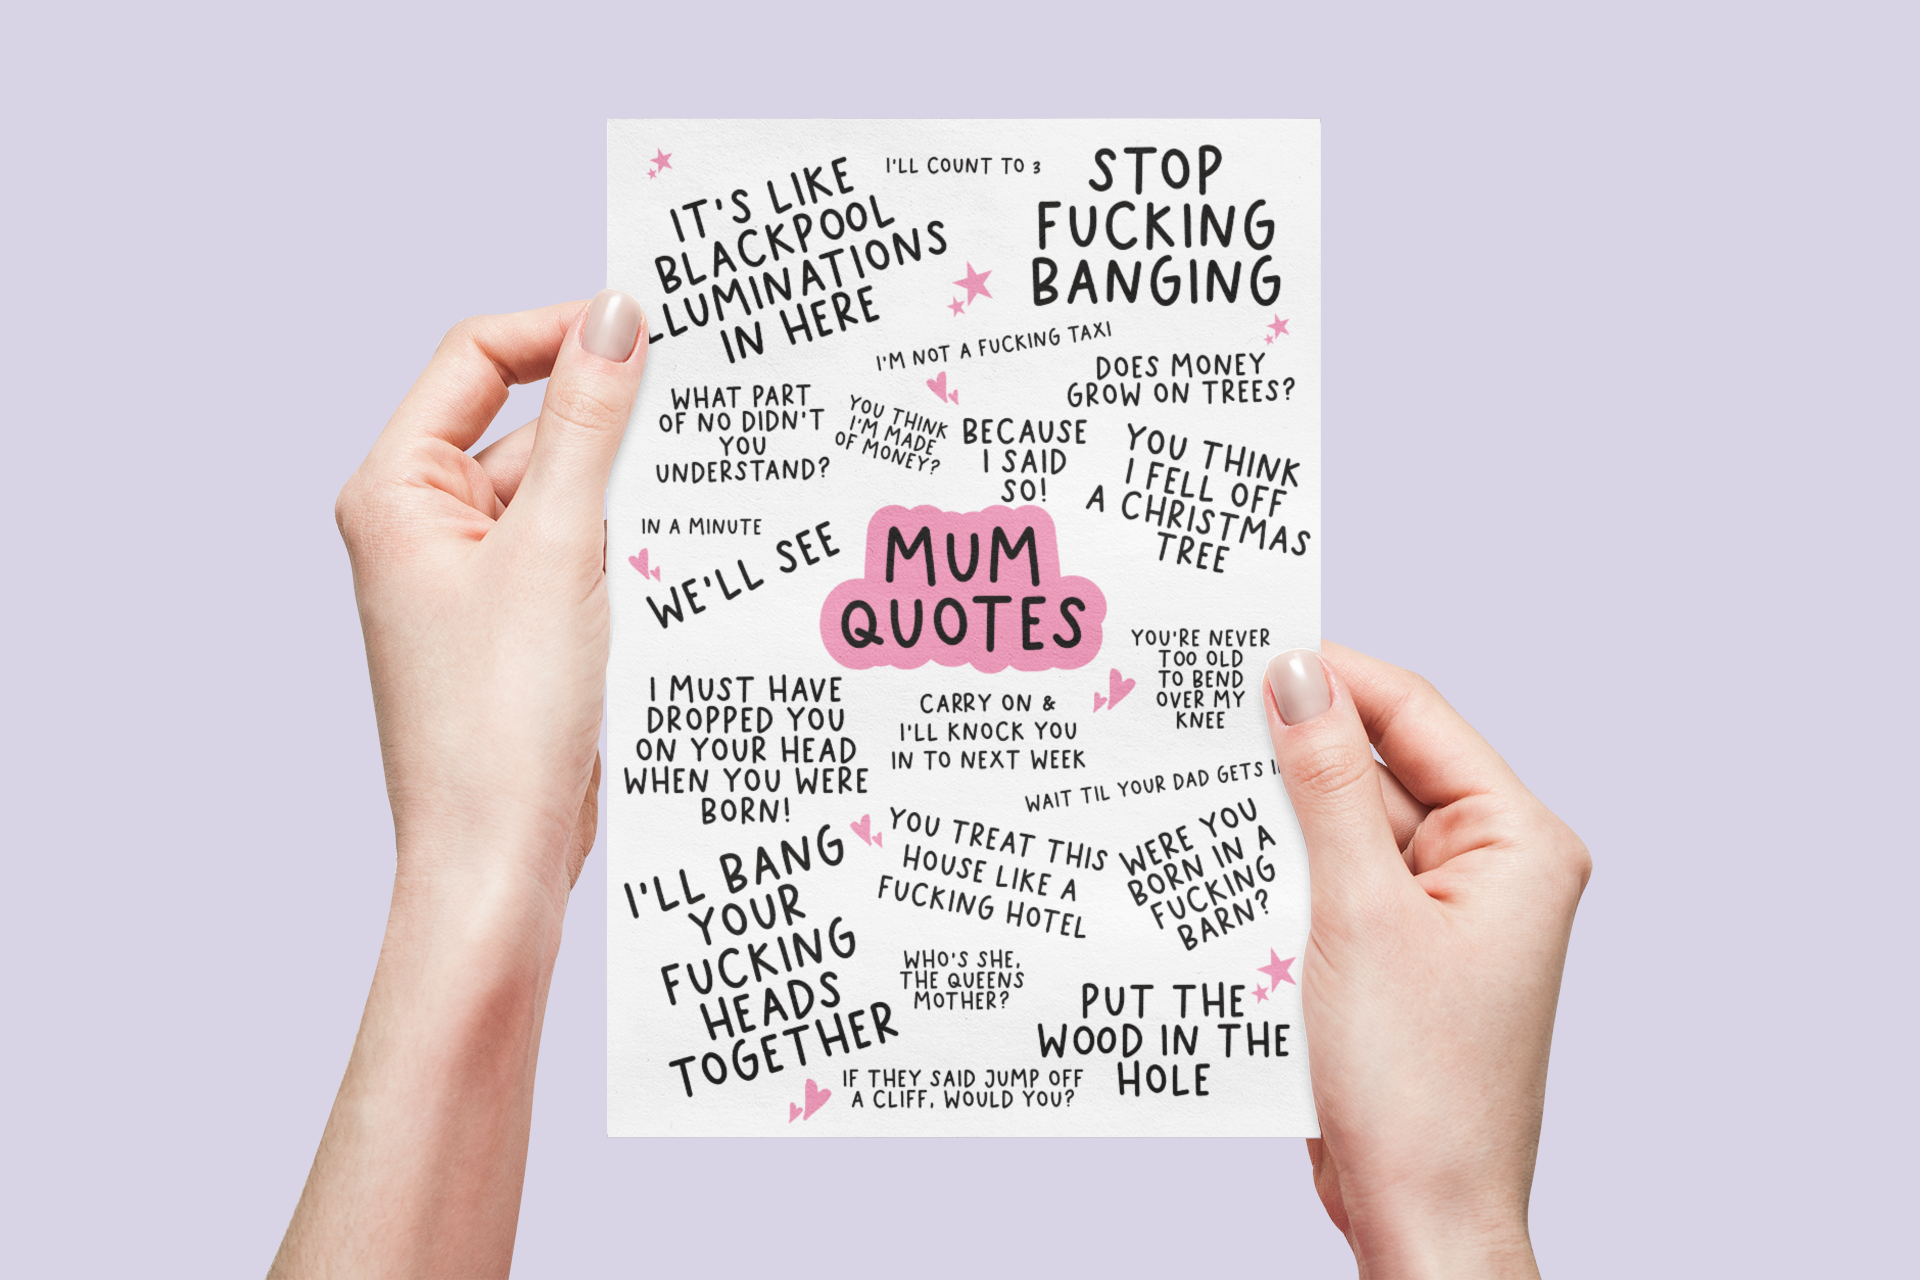 I'LL COUNT TO 3
IT'S LIKE
BLACKPOOL
LLUMINATIONS
IN HERE
STOP
FUCKING
BANGING
I'M NOT A FUCKING TAXI
DOES MONEY
GROW ON TREES?
WHAT PART
OF NO DIDN'T
YOU
UNDERSTAND?
YOU THINK
I'M MADE
OF MONEY?
BECAUSE
I SAID
SO!
YOU THINK
I FELL OFF
A CHRISTMAS
TREE
IN A MINUTE
WE'LL SEE
MUM
QUOTES
YOU'RE NEVER
TOO OLD
TO BEND
OVER MY
KNEE
I MUST HAVE
DROPPED YOU
ON YOUR HEAD
WHEN YOU WERE
BORN!
CARRY ON &
I'LL KNOCK YOU
IN TO NEXT WEEK
WAIT TIL YOUR DAD GETS
I'LL BANG
YOUR
FUCKING
HEADS
TOGETHER
YOU TREAT THIS
HOUSE LIKE A
FUCKING HOTEL
WERE YOU
BORN IN A
FUCKING
BARN?
WHO'S SHE,
THE QUEENS
MOTHER?
PUT THE
WOOD IN THE
HOLE
IF THEY SAID JUMP OFF
A CLIFF, WOULD YOU?